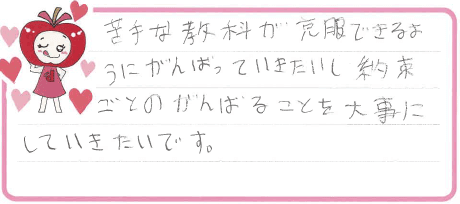 苦手な教科が克服できるよ
うにがんばっていきたいし約束
ごとのがんばることを大事に
していきたいです。